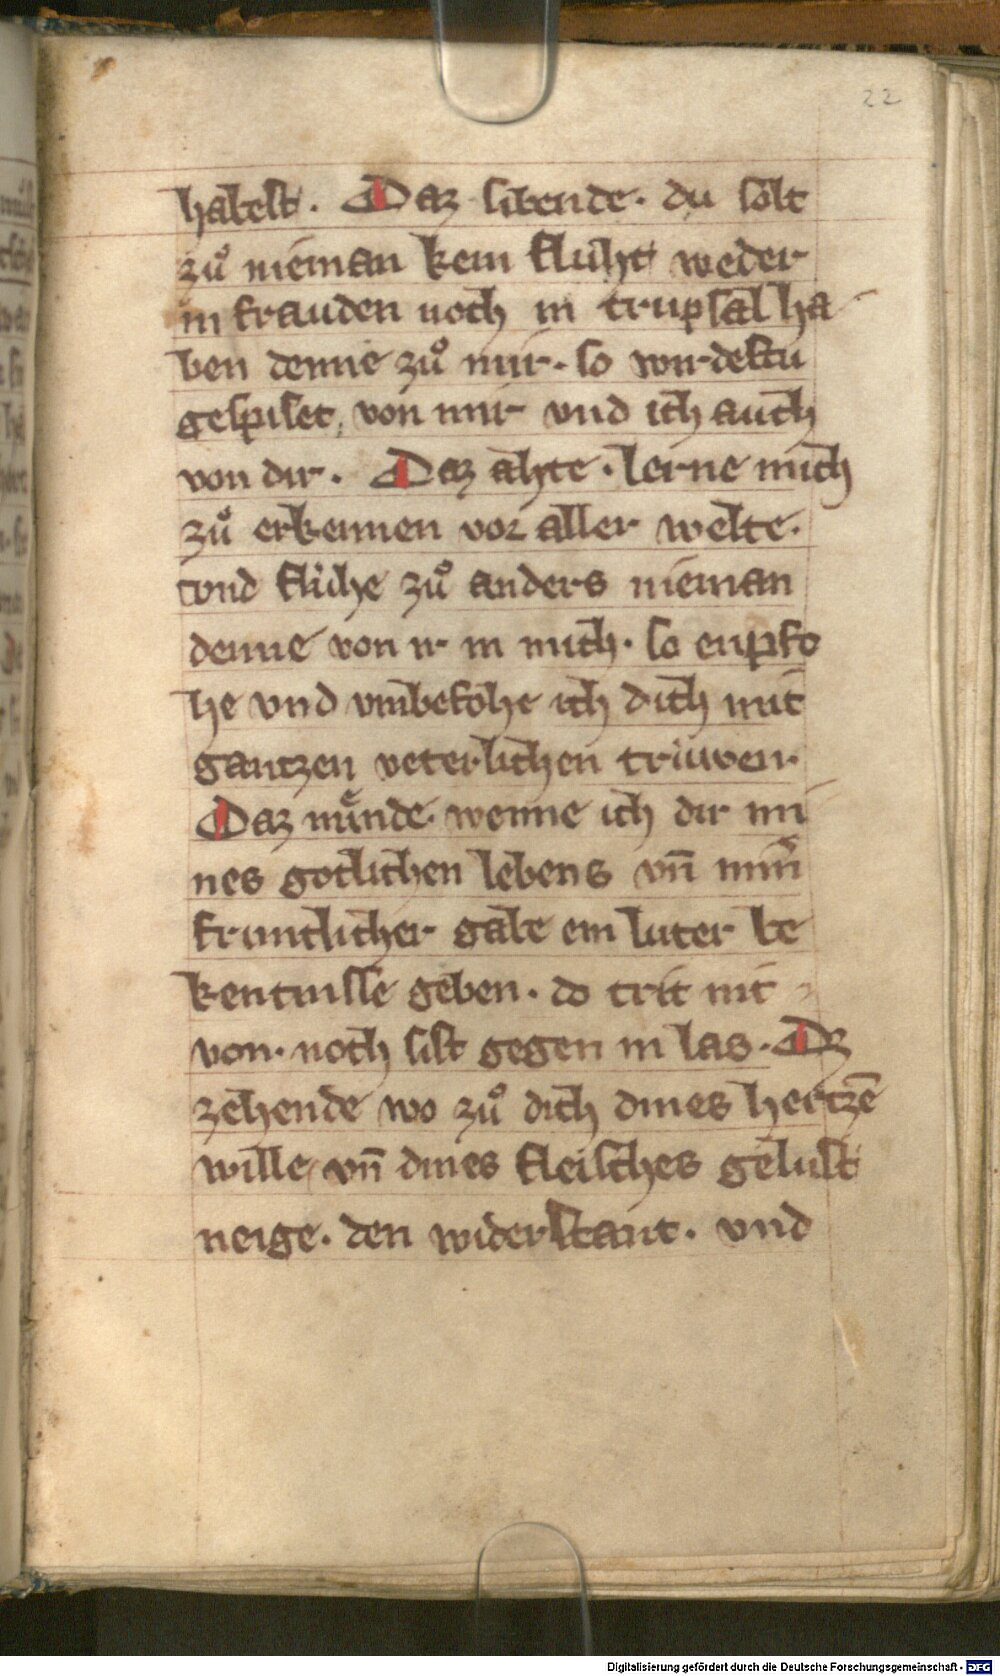 22
habest. Daz sibende. du solt
zuͦ nieman kein fluht weder
in frauden noch in trupsal ha
ben denne zuͦ mir. so wirdestu
gespiset von mir vnd ich auch
von dir. Daz ahte. lerne mich
zuͦ erkennen vor aller welte.
vnd flühe zuͦ anders nieman
denne von ir in mich. so enpfo
he vnd vmbefohe ich dich mit
gantzen veterlichen trüwen.
Daz nünde. wenne ich dir mi
nes gotlichen lebens vn̄ min̄
fruntlicher gabe ein luter be
kentnisse geben. do trit nit
von. noch sist gegen in las. Dz
zehende wo zuͦ dich dines hertzē
wille vn̄ dines fleisches gelust
neige. den widerstant. vnd
Digitalisierung gefördert durch die Deutsche Forschungsgemeinschaft - DFG